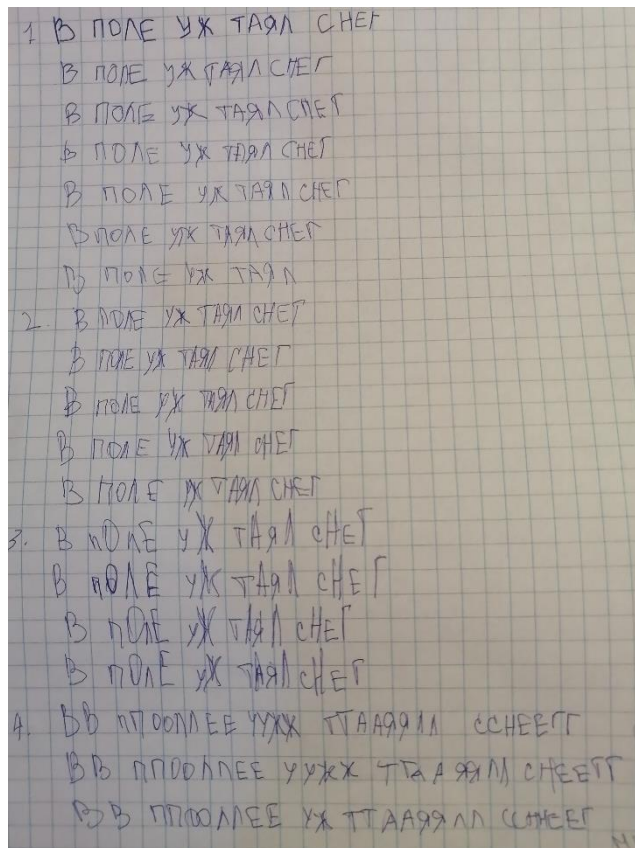 1 В ПОЛЕ УЖ ТАЯЛ СНЕГ
В ПОЛЕ УЖ ТАЯЛ СНЕГ
В ПОЛЕ УЖ ТАЯЛ СНЕГ
В ПОЛЕ УЖ ТАЯЛ СНЕГ
В ПОЛЕ УЖ ТАЯЛ СНЕГ
В ПОЛЕ УЖ ТАЯЛ СНЕГ
В ПОЛЕ УЖ ТАЯЛ
2. В ПОЛЕ УЖ ТАЯЛ СНЕГ
В ПОЛЕ УЖ ТАЯЛ СНЕГ
В ПОЛЕ УЖ ТАЯЛ СНЕГ
В ПОЛЕ УЖ ТАЯЛ СНЕГ
В ПОЛЕ УЖ ТАЯЛ СНЕГ
3. В ПОЛЕ УЖ ТАЯЛ СНЕГ
В ПОЛЕ УЖ ТАЯЛ СНЕГ
В ПОЛЕ УЖ ТАЯЛ СНЕГ
В ПОЛЕ УЖ ТАЯЛ СНЕГ
4. ВВ ППООЛЛЕЕ УУЖЖ ТТААЯЯЛЛ ССНЕЕГГ
ВВ ППООЛЛЕЕ УУЖЖ ТТАА ЯЯЛЛ СНЕЕГГ
ВВ ППООЛЛЕЕ УЖ ТТААЯЯЛЛ ССННЕЕГ